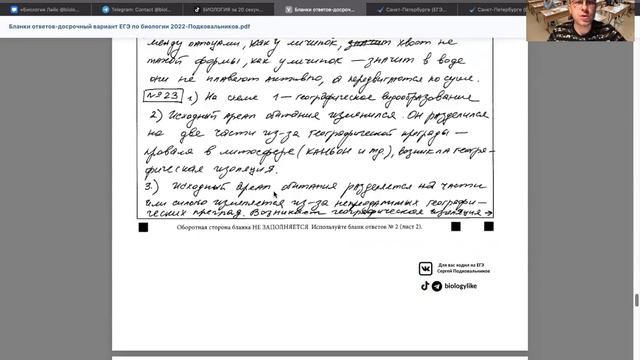 «Биология Лайк @biolo...
Telegram: Contact @biolo...
БИОЛОГИЯ за 20 секун...
Бланки ответов-досроч...
Санкт-Петербурге (ЕГЭ...
Санкт-Петербурге (ЕГЭ...
Бланки ответов-досрочный вариант ЕГЭ по биологии 2022-Подковальников.pdf
между пальцами, как у личинок, хвост не
такой формы, как у личинок — значит в воде
они не плавают активно, а передвигаются по суше.
№23 1) На схеме 1 — географическое видообразование
2) Исходный ареал обитания изменился. Он разделился
на две части из-за географической преграды —
провала в литосфере (каньон и тд), возникла геогра-
фическая изоляция.
3.) Исходный ареал обитания разделяется на части
или сильно изменяется из-за непреодолимых географи-
ческих преград. Возникает географическая изоляция →
Оборотная сторона бланка НЕ ЗАПОЛНЯЕТСЯ Используйте бланк ответов № 2 (лист 2).
Для вас кодил на ЕГЭ
Сергей Подковальников
biologylike